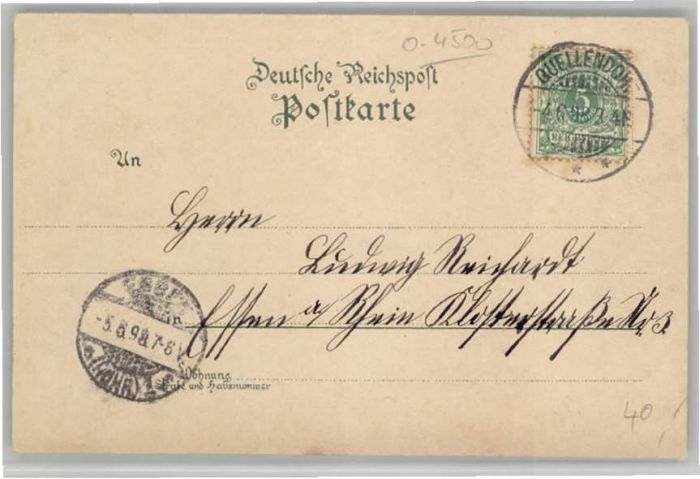 0-4500
Deutsche Reichspost
Postkarte
QUELLENDORF
4.6.98.
5
An
Herrn
Ludwig Reichardt
in Essen a/Rhein Klosterstraße Nr. 3
-5.6.98.7-8V
(RUHR)
Wohnung
Straße und Hausnummer
40,